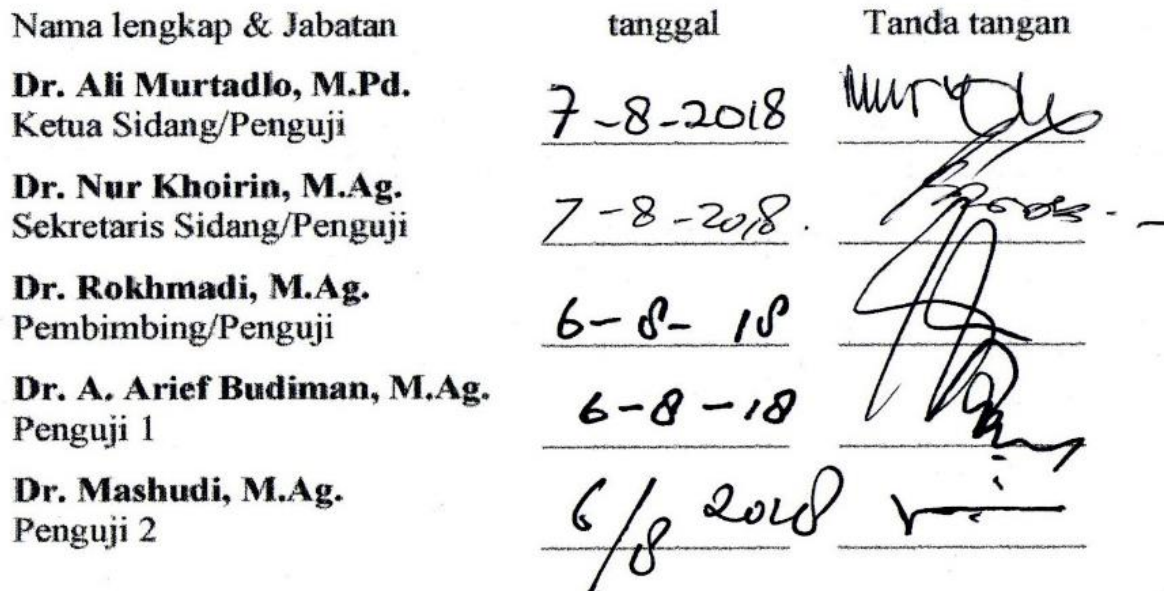 Nama lengkap & Jabatan tanggal Tanda tangan
Dr. Ali Murtadlo, M.Pd.
Ketua Sidang/Penguji 7-8-2018
Dr. Nur Khoirin, M.Ag.
Sekretaris Sidang/Penguji 7-8-2018.
Dr. Rokhmadi, M.Ag.
Pembimbing/Penguji 6-8-18
Dr. A. Arief Budiman, M.Ag.
Penguji 1 6-8-18
Dr. Mashudi, M.Ag.
Penguji 2 6/8 2018